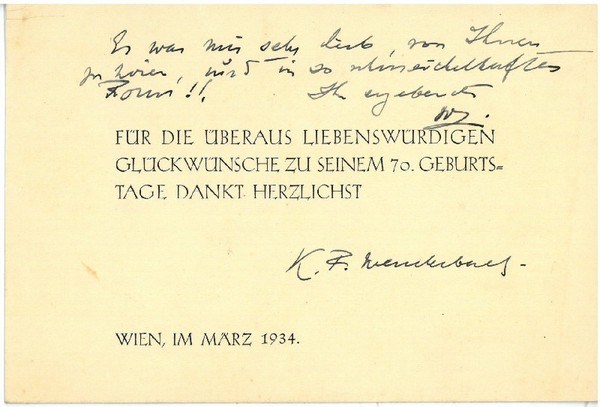 Es war mir sehr lieb, von Ihnen
zu hören, und in so schmeichelhafter
Form!! Ihr
W.
FÜR DIE ÜBERAUS LIEBENSWÜRDIGEN
GLÜCKWÜNSCHE ZU SEINEM 70. GEBURTS=
TAGE DANKT HERZLICHST
K. F. Wenckebach
WIEN, IM MÄRZ 1934.